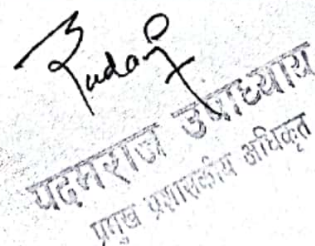 पदमराज उपाध्याय
प्रमुख प्रशासकीय अधिकृत